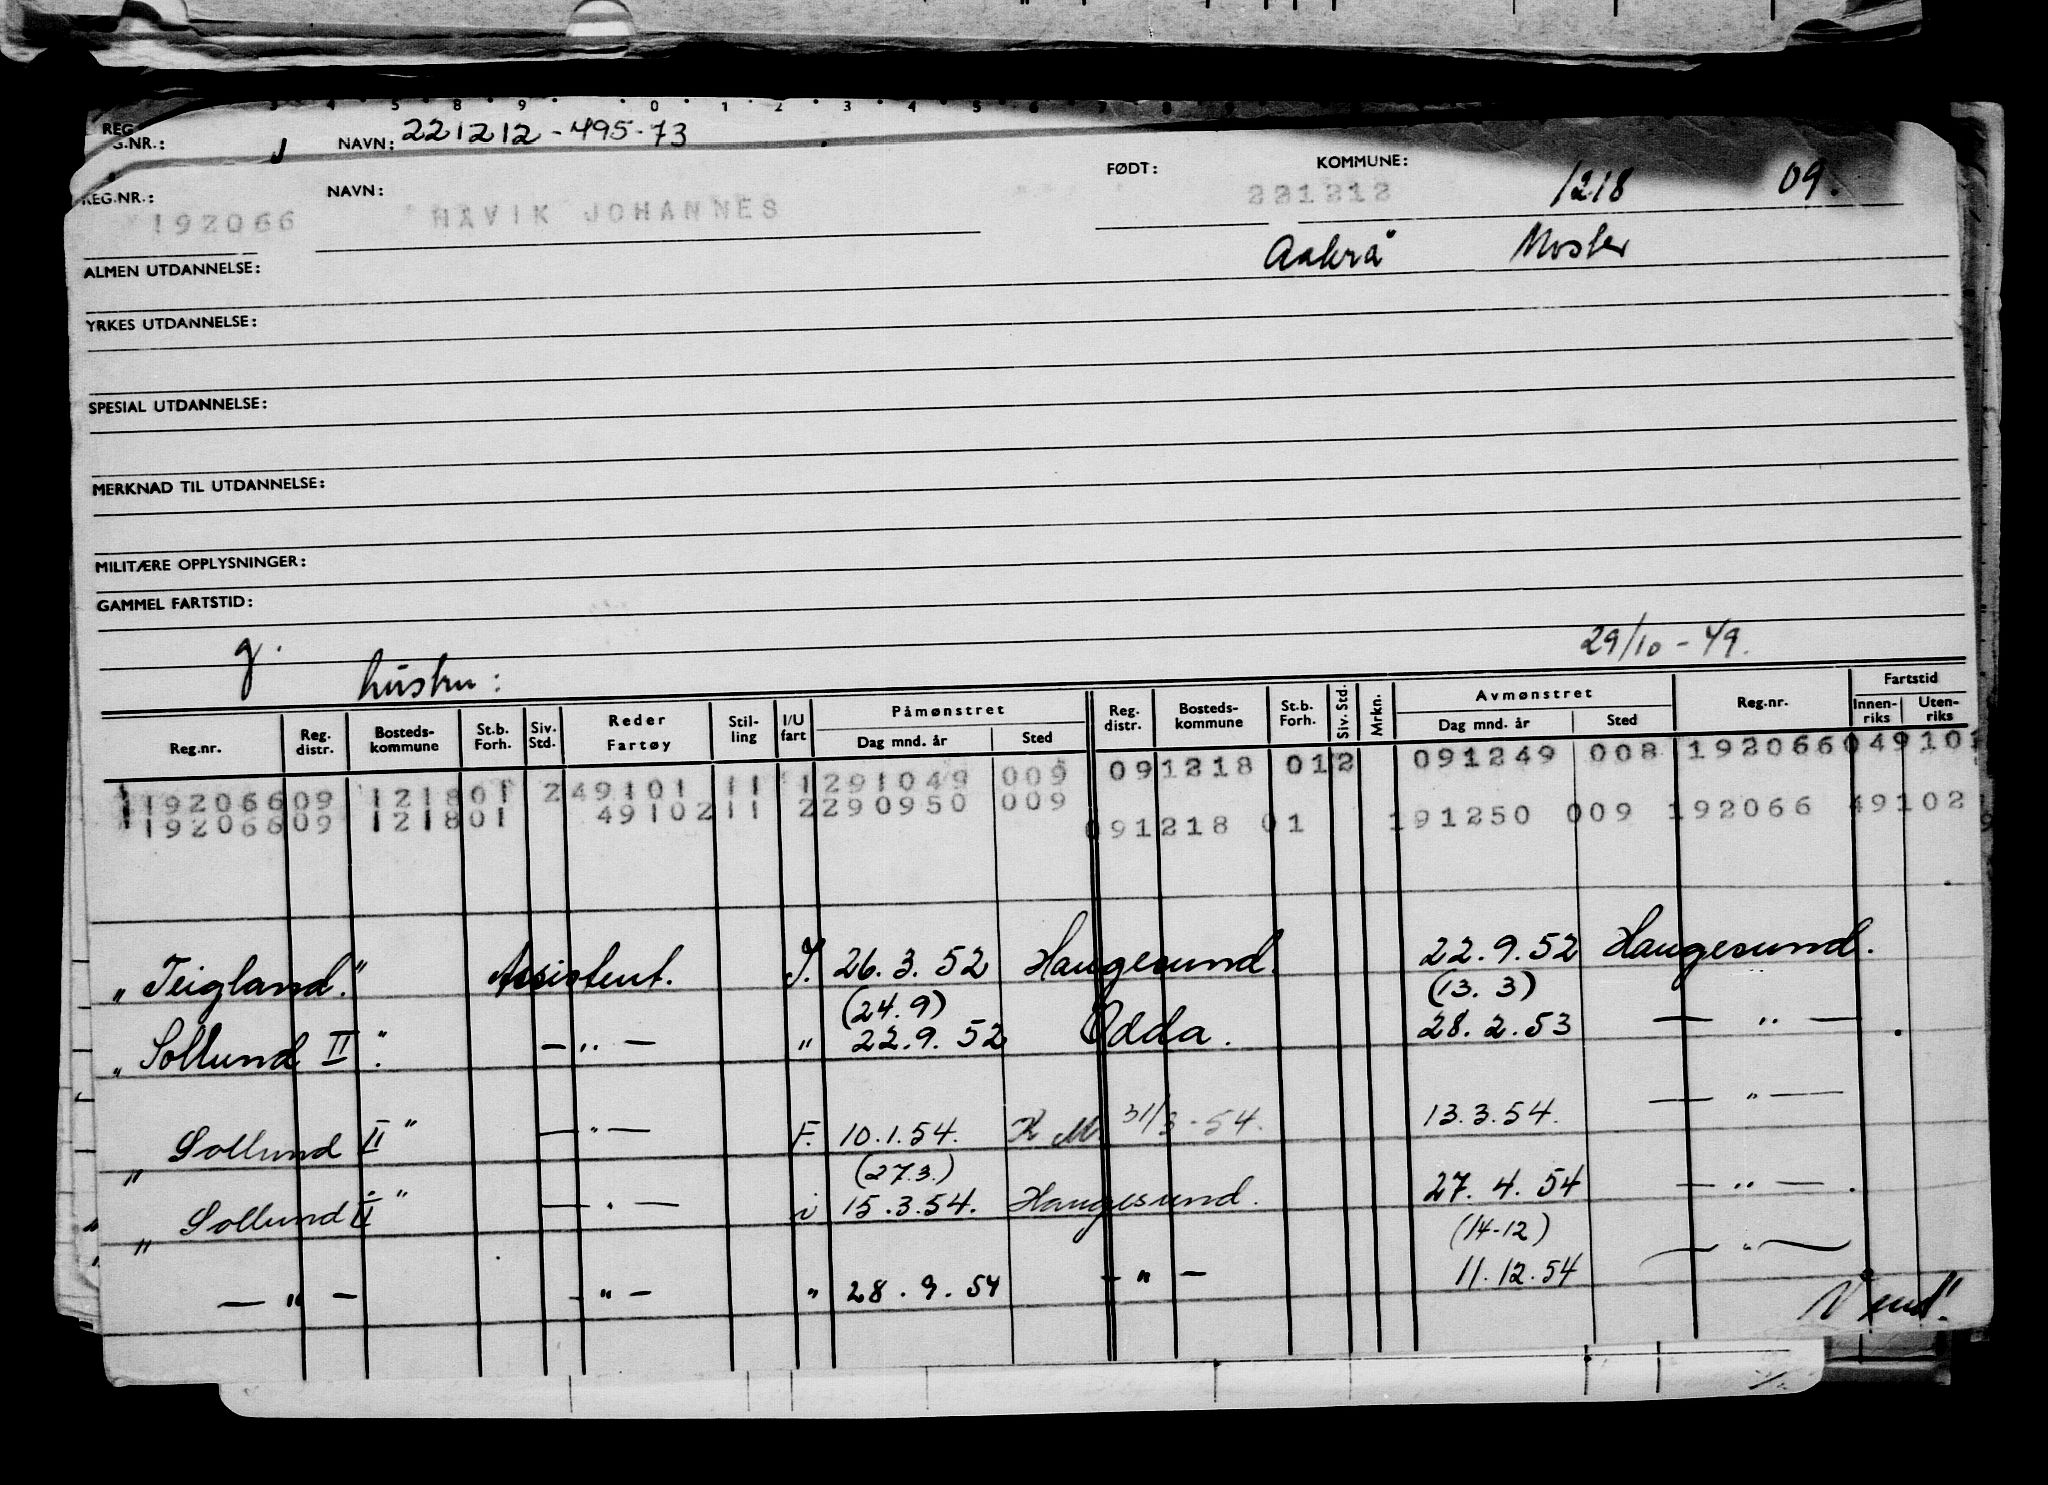 3 4 5 8 9 0 1 2 3 4 5 6 7 8 9
REG
G.NR.: J NAVN: 221212-495-73
REG.NR.: NAVN: FØDT: KOMMUNE:
192066 HAVIK JOHANNES 221212 1218 09.
ALMEN UTDANNELSE: Aakra Moster
YRKES UTDANNELSE:
SPESIAL UTDANNELSE:
MERKNAD TIL UTDANNELSE:
MILITÆRE OPPLYSNINGER:
GAMMEL FARTSTID:
g. hustru: 29/10-49.
Reg.nr. Reg. distr. Bosteds-kommune St.b. Forh. Siv. Std. Reder Fartøy Stil-ling I/U fart Påmønstret Dag mnd. år Sted Reg. distr. Bosteds-kommune St.b. Forh. Siv. Std. Mrkn. Avmønstret Dag mnd. år Sted Reg.nr. Fartstid Innen-riks Uten-riks
192066 09 1218 01 2 49101 11 1 291049 009 09 1218 01 2 091249 008 192066 049101
192066 09 1218 01 49102 11 2 290950 009 09 1218 01 191250 009 192066 49102
„Teigland." Assistent. I. 26.3.52 Haugesund. 22.9.52 Haugesund.
(24.9) (13.3)
„Sollund II". — „ — „ 22.9.52 Odda. 28.2.53 — „ —
„Sollund II" — „ — F. 10.1.54. K M. 31/3-54. 13.3.54. — „ —
(27.3.)
„Sollund II" — „ — i 15.3.54. Haugesund. 27.4.54 — „ — .
(14-12)
— „ — — „ — „ 28.9.54 — „ — 11.12.54 — „ —
Vend!